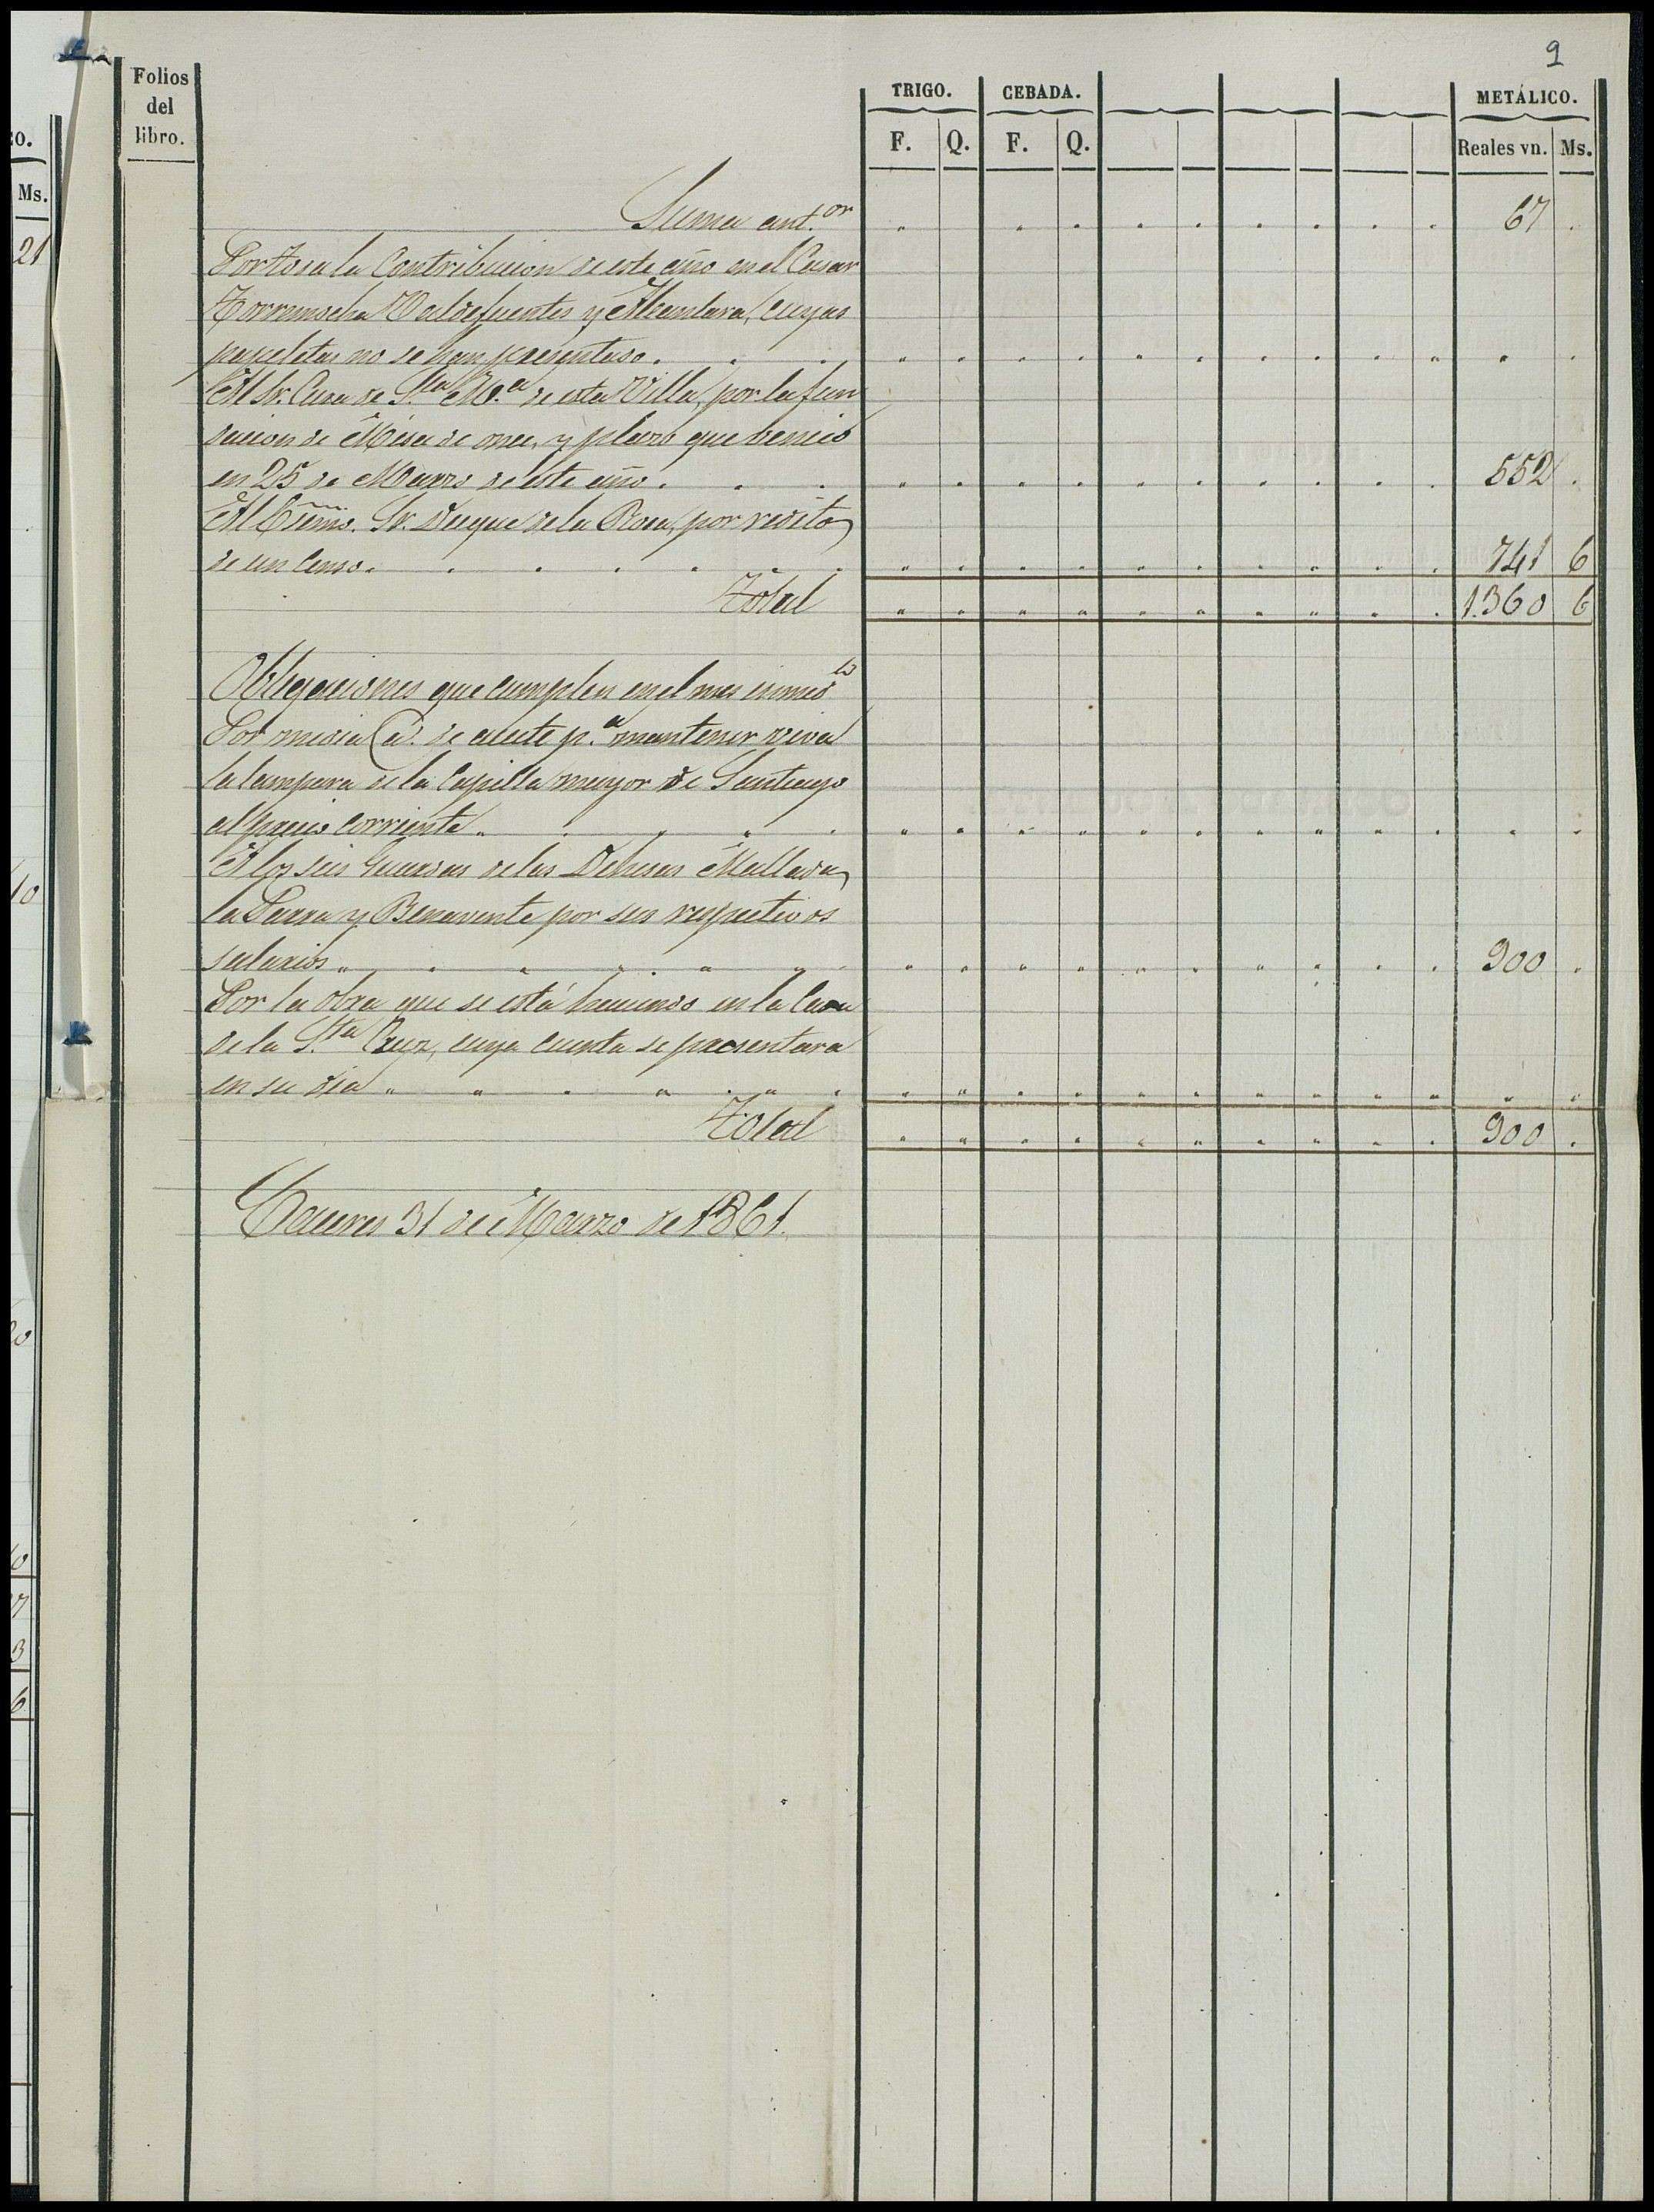 9
Folios del libro.
TRIGO. CEBADA. METÁLICO.
F. Q. F. Q. Reales vn. Ms.
Suma ant.or 67
Por toda la Contribucion de este año en el Casar
Torremocha Valdefuentes y Alcantara, cuyas
papeletas no se han presentado.
Al Sr. Cura de Sta. Ma. de esta Villa, por la fun
dacion de Misa de once, y plazo que vencio
en 25 de Marzo de este año. 552
Al Exmo. Sr. Duque de la Roca, por redito
de un Censo. 741 6
Total 1.360 6
Obligaciones que cumplen en el mes inmedto
Por media @. de aceite p.a mantener viva
la lampara de la Capilla mayor de Santiago
al precio corriente
A los seis Guardas de las Dehesas Mallada,
la Parra y Benavente por sus respectivos
salarios 900
Por la obra que se está haciendo en la Casa
de la Sta Cruz, cuya cuenta se presentara
en su dia
Total 900
Caceres 31 de Marzo de 1861.
O.
Ms.
21
10